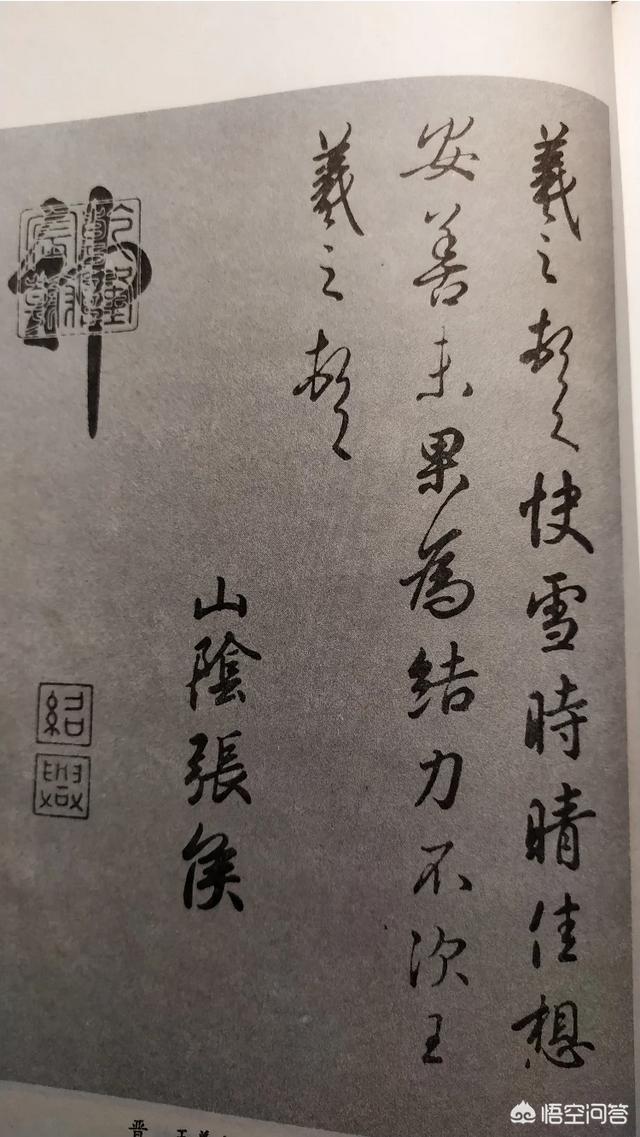 羲之頓首快雪時晴佳想
安善未果為結力不次王
羲之頓首
山陰張侯
神
紹
興
晋 王羲
悟空问答